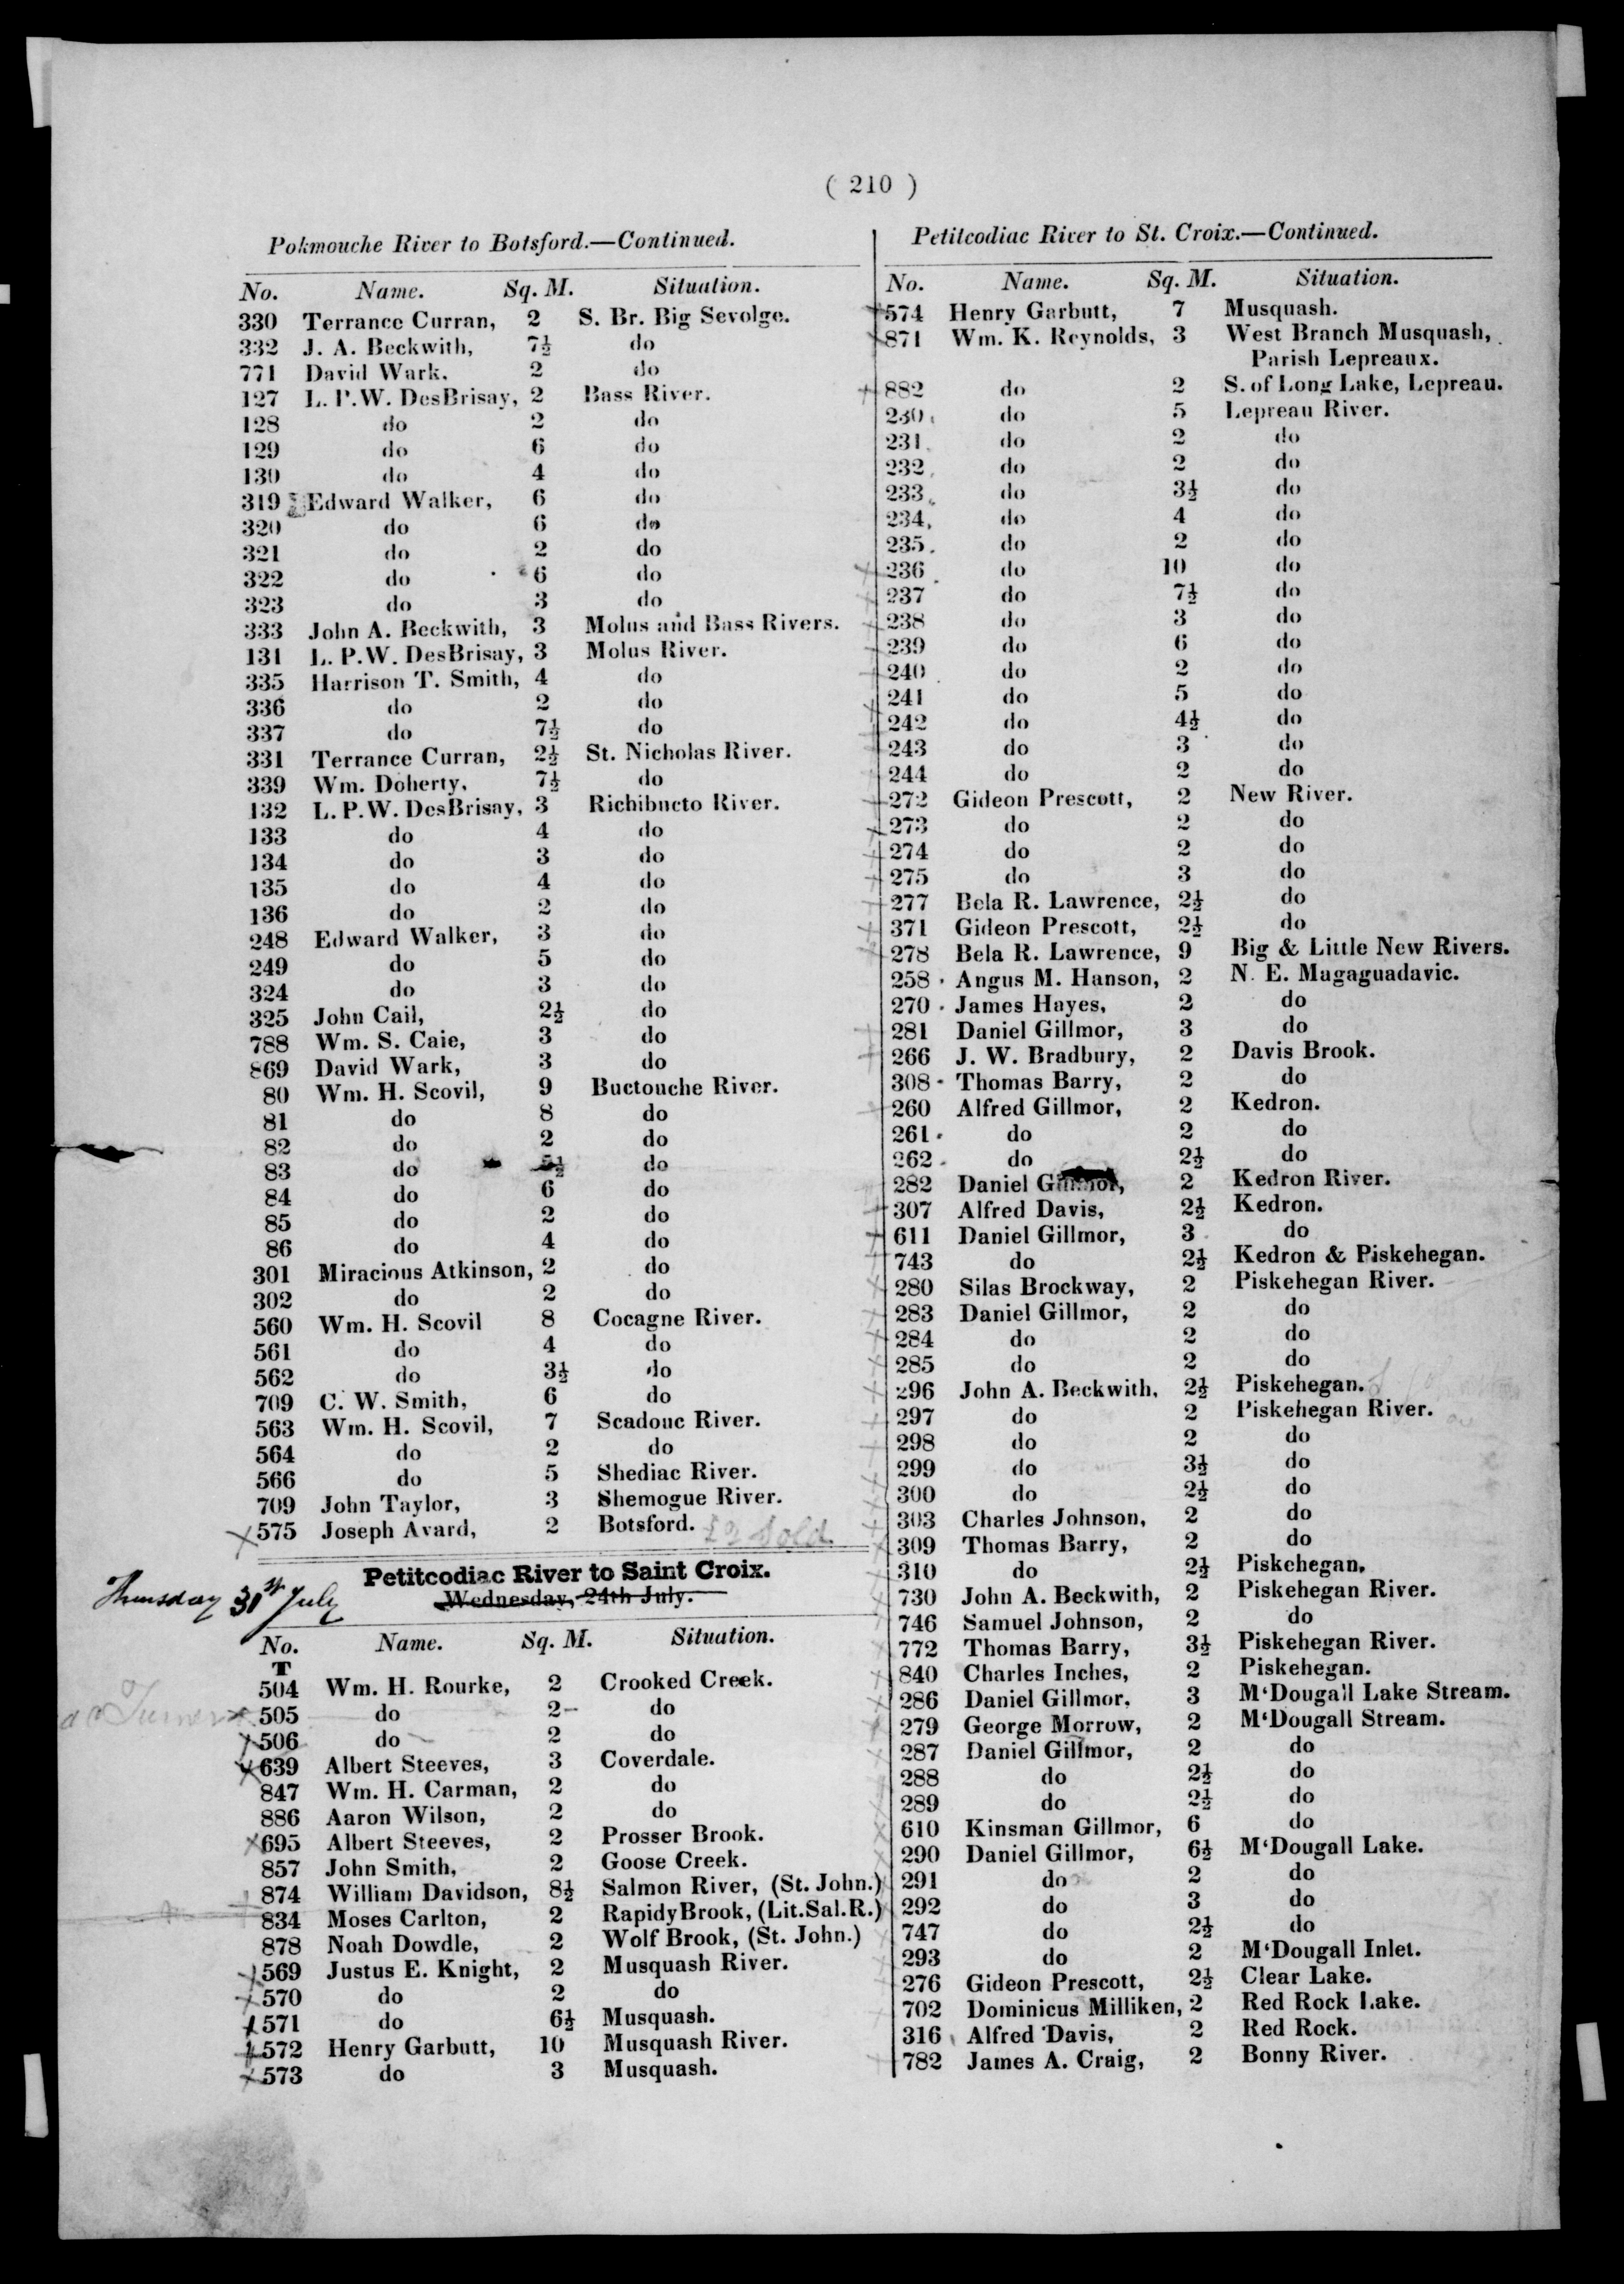 ( 210 )
Pokmouche River to Botsford.—Continued.
No. Name. Sq. M. Situation.
330 Terrance Curran, 2 S. Br. Big Sevolge.
332 J. A. Beckwith, 7½ do
771 David Wark, 2 do
127 L. P. W. DesBrisay, 2 Bass River.
128 do 2 do
129 do 6 do
130 do 4 do
319 Edward Walker, 6 do
320 do 6 do
321 do 2 do
322 do 6 do
323 do 3 do
333 John A. Beckwith, 3 Molus and Bass Rivers.
131 L. P. W. DesBrisay, 3 Molus River.
335 Harrison T. Smith, 4 do
336 do 2 do
337 do 7½ do
331 Terrance Curran, 2½ St. Nicholas River.
339 Wm. Doherty, 7½ do
132 L. P. W. DesBrisay, 3 Richibucto River.
133 do 4 do
134 do 3 do
135 do 4 do
136 do 2 do
248 Edward Walker, 3 do
249 do 5 do
324 do 3 do
325 John Cail, 2½ do
788 Wm. S. Caie, 3 do
869 David Wark, 3 do
80 Wm. H. Scovil, 9 Buctouche River.
81 do 8 do
82 do 2 do
83 do ½ do
84 do 6 do
85 do 2 do
86 do 4 do
301 Miracious Atkinson, 2 do
302 do 2 do
560 Wm. H. Scovil 8 Cocagne River.
561 do 4 do
562 do 3½ do
709 C. W. Smith, 6 do
563 Wm. H. Scovil, 7 Scadouc River.
564 do 2 do
566 do 5 Shediac River.
709 John Taylor, 3 Shemogue River.
× 575 Joseph Avard, 2 Botsford. Sold
Petitcodiac River to Saint Croix.
Thursday 31st July Wednesday, 24th July.
No. Name. Sq. M. Situation.
T
504 Wm. H. Rourke, 2 Crooked Creek.
Turner × 505 do 2 do
× 506 do 2 do
× 639 Albert Steeves, 3 Coverdale.
847 Wm. H. Carman, 2 do
886 Aaron Wilson, 2 do
× 695 Albert Steeves, 2 Prosser Brook.
857 John Smith, 2 Goose Creek.
874 William Davidson, 8½ Salmon River, (St. John.)
834 Moses Carlton, 2 Rapidy Brook, (Lit. Sal. R.)
878 Noah Dowdle, 2 Wolf Brook, (St. John.)
× 569 Justus E. Knight, 2 Musquash River.
× 570 do 2 do
× 571 do 6½ Musquash.
× 572 Henry Garbutt, 10 Musquash River.
× 573 do 3 Musquash.
Petitcodiac River to St. Croix.—Continued.
No. Name. Sq. M. Situation.
574 Henry Garbutt, 7 Musquash.
871 Wm. K. Reynolds, 3 West Branch Musquash,
Parish Lepreaux.
882 do 2 S. of Long Lake, Lepreau.
230 do 5 Lepreau River.
231 do 2 do
232 do 2 do
233 do 3½ do
234 do 4 do
235 do 2 do
236 do 10 do
237 do 7½ do
238 do 3 do
239 do 6 do
240 do 2 do
241 do 5 do
242 do 4½ do
243 do 3 do
244 do 2 do
272 Gideon Prescott, 2 New River.
273 do 2 do
274 do 2 do
275 do 3 do
277 Bela R. Lawrence, 2½ do
371 Gideon Prescott, 2½ do
278 Bela R. Lawrence, 9 Big & Little New Rivers.
258 Angus M. Hanson, 2 N. E. Magaguadavic.
270 James Hayes, 2 do
281 Daniel Gillmor, 3 do
266 J. W. Bradbury, 2 Davis Brook.
308 Thomas Barry, 2 do
260 Alfred Gillmor, 2 Kedron.
261 do 2 do
262 do 2½ do
282 Daniel Gillmor, 2 Kedron River.
307 Alfred Davis, 2½ Kedron.
611 Daniel Gillmor, 3 do
743 do 2½ Kedron & Piskehegan.
280 Silas Brockway, 2 Piskehegan River.
283 Daniel Gillmor, 2 do
284 do 2 do
285 do 2 do
296 John A. Beckwith, 2½ Piskehegan.
297 do 2 Piskehegan River.
298 do 2 do
299 do 3½ do
300 do 2½ do
303 Charles Johnson, 2 do
309 Thomas Barry, 2 do
310 do 2½ Piskehegan,
730 John A. Beckwith, 2 Piskehegan River.
746 Samuel Johnson, 2 do
772 Thomas Barry, 3½ Piskehegan River.
840 Charles Inches, 2 Piskehegan.
286 Daniel Gillmor, 3 M‘Dougall Lake Stream.
279 George Morrow, 2 M‘Dougall Stream.
287 Daniel Gillmor, 2 do
288 do 2½ do
289 do 2½ do
610 Kinsman Gillmor, 6 do
290 Daniel Gillmor, 6½ M‘Dougall Lake.
291 do 2 do
292 do 3 do
747 do 2½ do
293 do 2 M‘Dougall Inlet.
276 Gideon Prescott, 2½ Clear Lake.
702 Dominicus Milliken, 2 Red Rock Lake.
316 Alfred Davis, 2 Red Rock.
782 James A. Craig, 2 Bonny River.